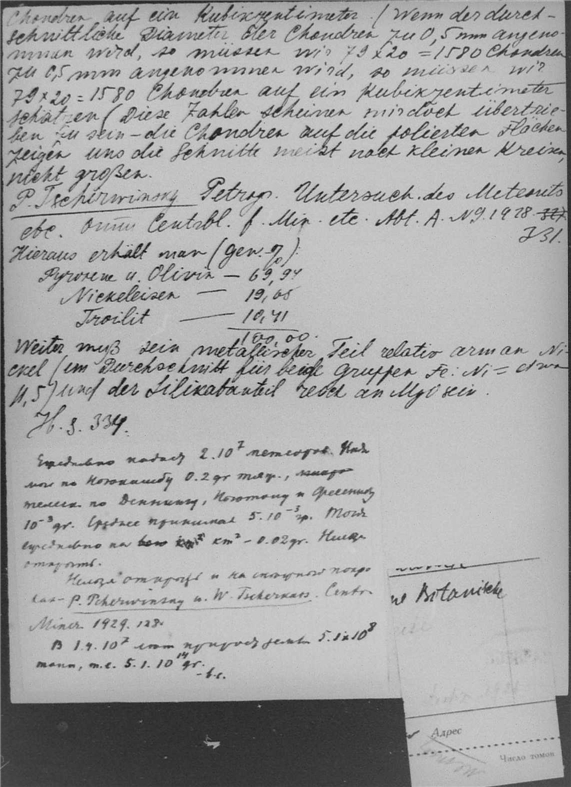 Chondren auf ein Kubikzentimeter. (Wenn der durch-
schnittliche Diameter der Chondren zu 0,5 mm angeno-
mman wird, so müssen wir 79 x 20 = 1580 Chondren
zu 0,5 mm angenommen wird, so müssen wir
79 x 20 = 1580 Chondren auf ein Kubikzentimeter
schätzen (Diese Zahlen scheinen mir doch übertrie-
ben zu sein – die Chondren auf die polierten Flächen
zeigen uns die Schnitte meist nach kleinen Kreisen,
nicht großen.
P. Tschirwinsky Petrogr. Untersuch. des Meteorits
etc. Centsbl. f. Min. etc. Abt. A. N9. 1928
731.
Hieraus erhält man (gew. %):
Pyroxene u. Olivin – 69,94
Nickeleisen — 19,65
Troilit — 10,41
100,00.
Weiter muß sein metallischer Teil relativ arm an Ni-
ckel (im Durchschnitt für beide Gruppen Fe: Ni = etwa
11,5) und der Silikatanteil reich an MgO sein.
H. S. 334.
Ежедневно падает 2.10⁷ метеоров.
по 0.2 gr
по Деннингу, и
10⁻³ gr. Среднее принимая 5.10⁻³ гр. Тогда
ежедневно на km² – 0.02 gr. Нельзя
открыть.
Нельзя открыть и на снежного покро
P. Tcherwinsky u. W. Tscherkas. Centr.
Miner. 1929. 128.
В 1.4.10⁷ лет 5.1.10⁸
тонн, т.е. 5.1.10¹⁴ gr.
Botanische
Адрес
Число томов